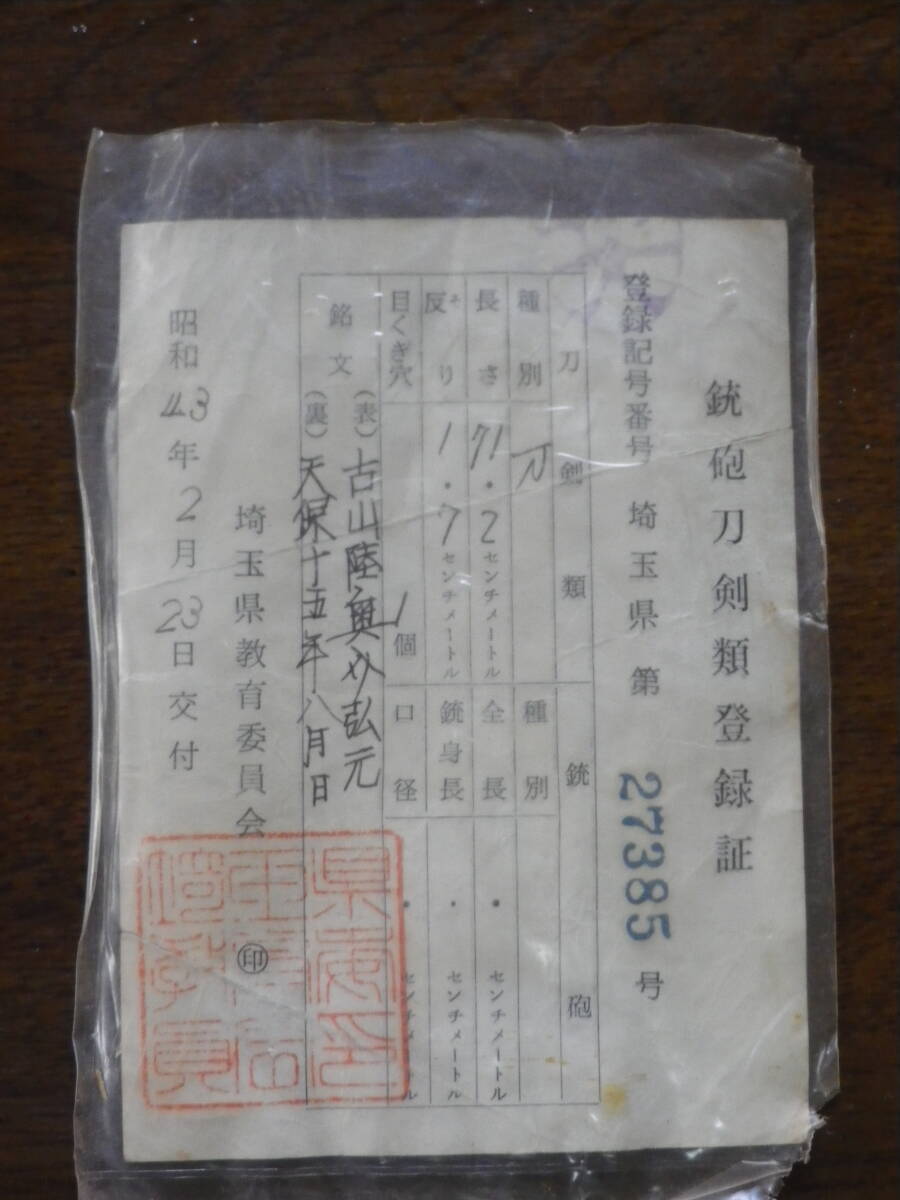 銃砲刀剣類登録証
登録記号番号 埼玉県 第 27385 号
刀剣類 銃砲
種別 刀 種別
長さ 71.2 センチメートル 全長 ・ センチメートル
反り そ 1.7 センチメートル 銃身長 ・ センチメートル
目くぎ穴 1個 口径 ・ センチメートル
銘文 (表) 古山陸奥介弘元
(裏) 天保十五年八月日
埼玉県教育委員会 印
昭和43年2月23日交付